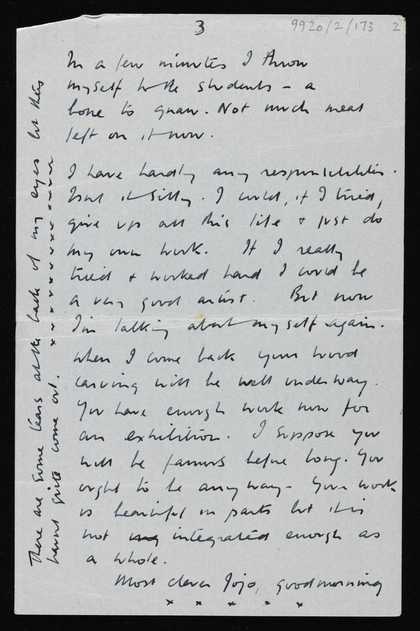 3
9920/2/173 2
In a few minutes I throw
myself to the students – a
bone to gnaw. Not much meat
left on it now.
I have hardly any responsibilities.
Isnt it silly. I could, if I tried,
give up all this life & just do
my own work. If I really
tried & worked hard I could be
a very good artist. But now
I'm talking about myself again.
When I come back your wood
carving will be well underway.
You have enough work now for
an exhibition. I suppose you
will be famous before long. You
ought to be anyway – Your work
is beautiful in parts but it is
not integrated enough as
a whole.
Most clever Jojo, goodmorning
x x x x x
There are some tears at the back of my eyes but they
havent quite come out. x x x x x x x x x x